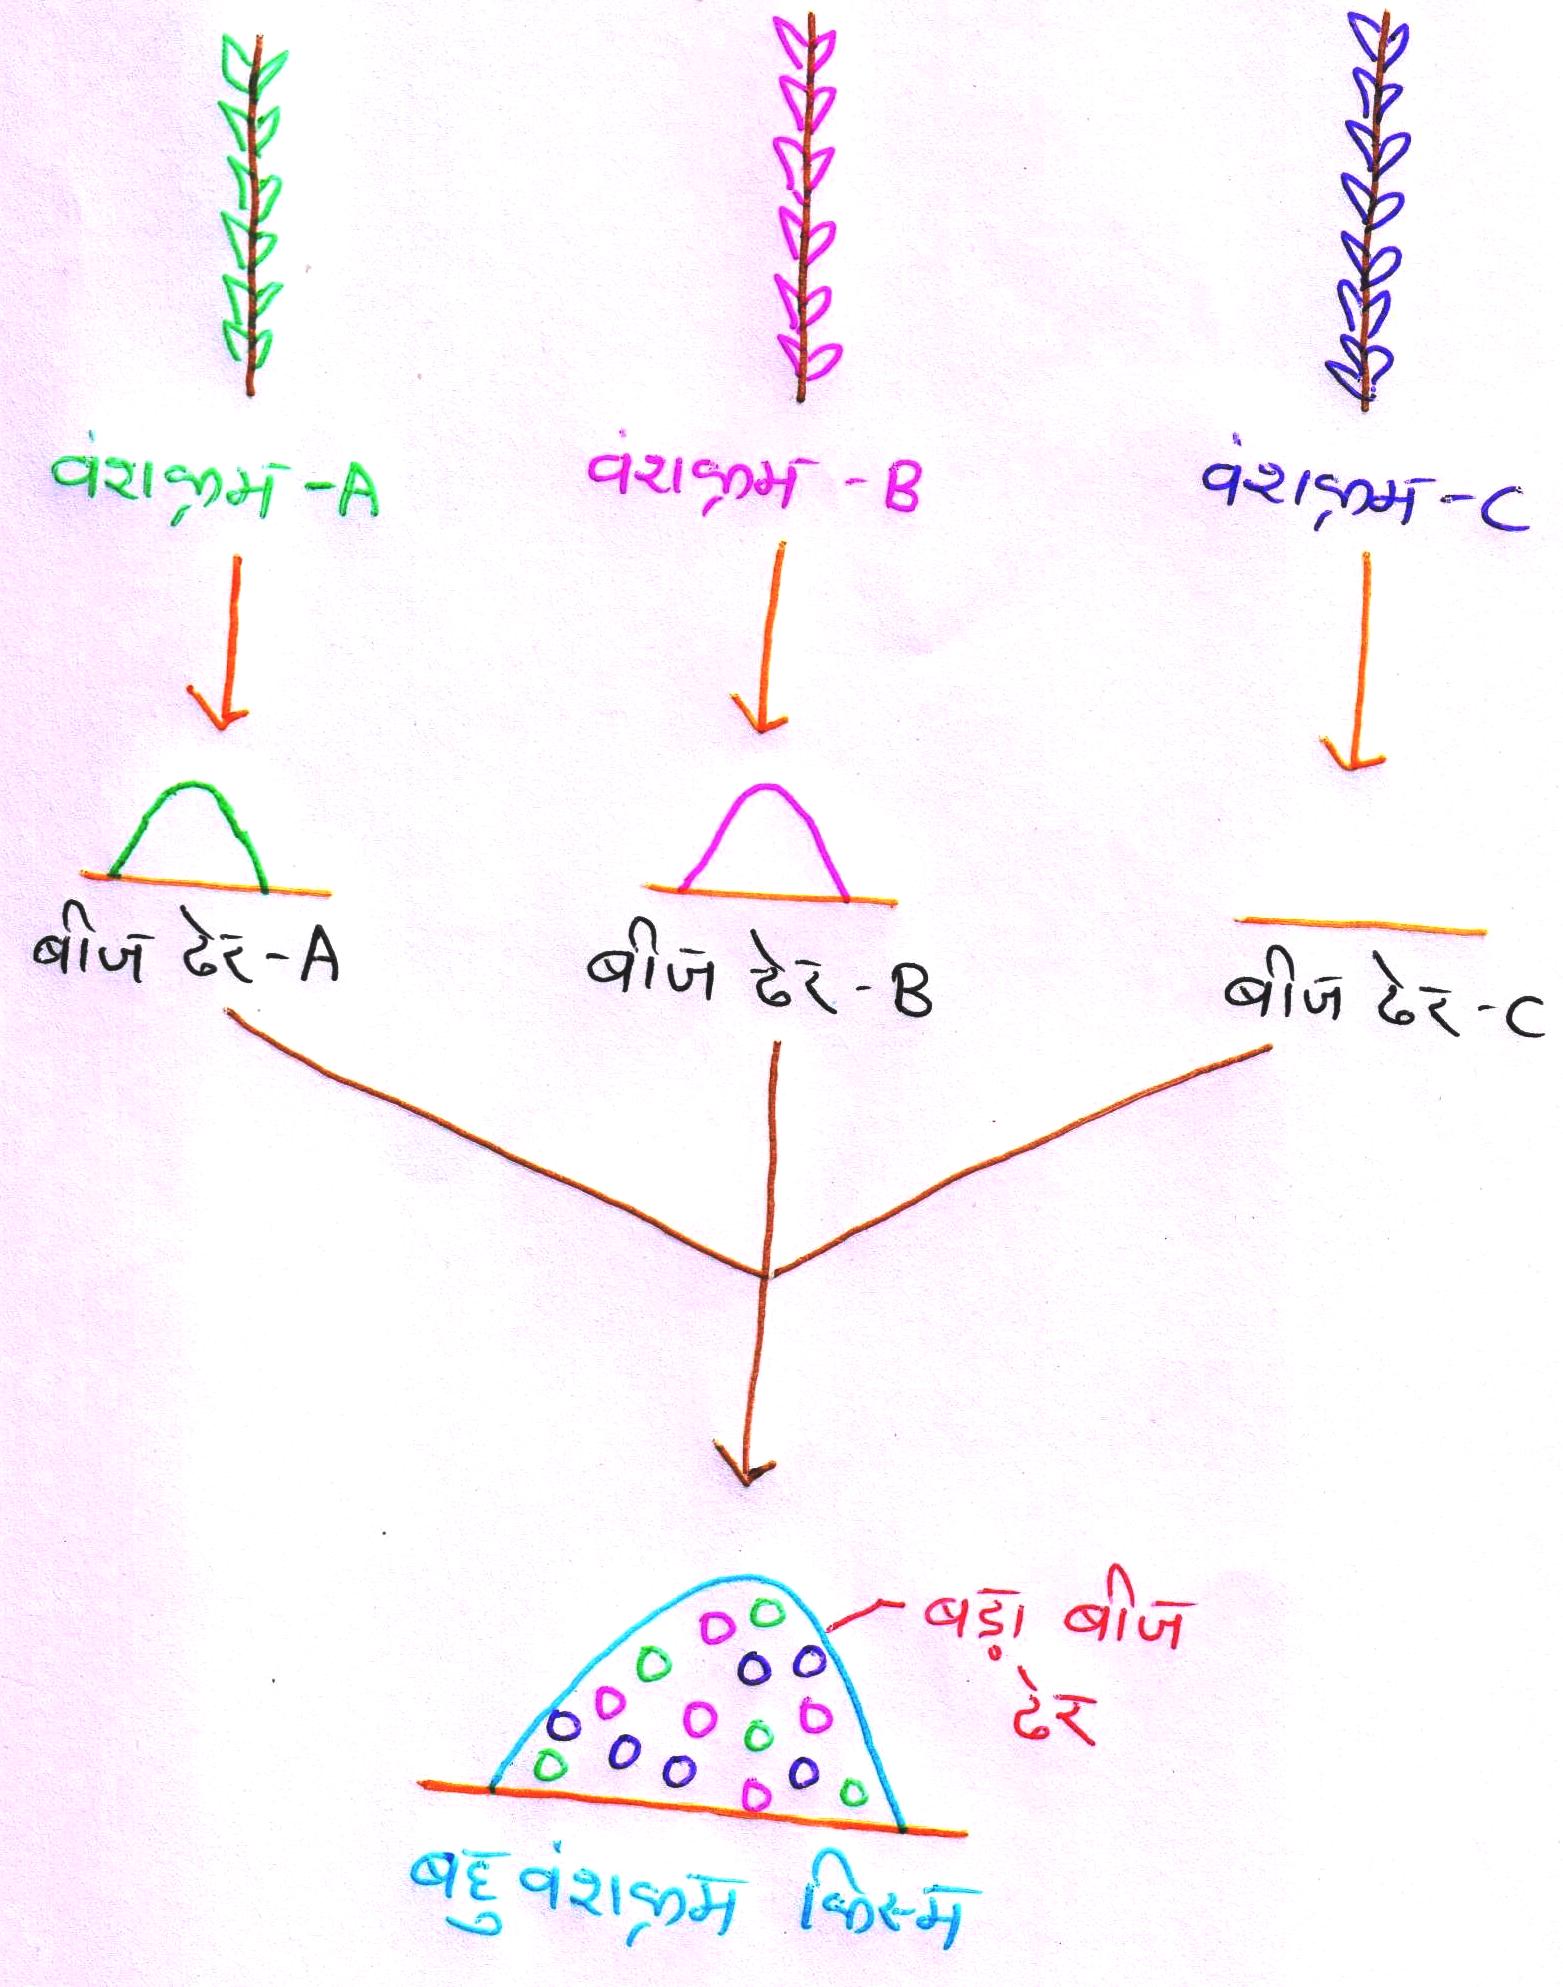 वंशक्रम -A
वंशक्रम - B
वंशक्रम - C
बीज ढेर - A
बीज ढेर - B
बीज ढेर - C
बड़ा बीज
ढेर
बहु वंशक्रम किस्म